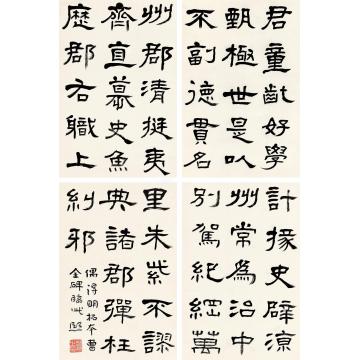 君童齔好學
甄極世是以
不副德貫名
州郡清挺夷
齊直慕史魚
歷郡右職上
計掾史辟涼
州常為治中
別駕紀綱萬
里朱紫不謬
典諸郡彈枉
糾邪
偶得明拓本曹
全碑臨此 熙